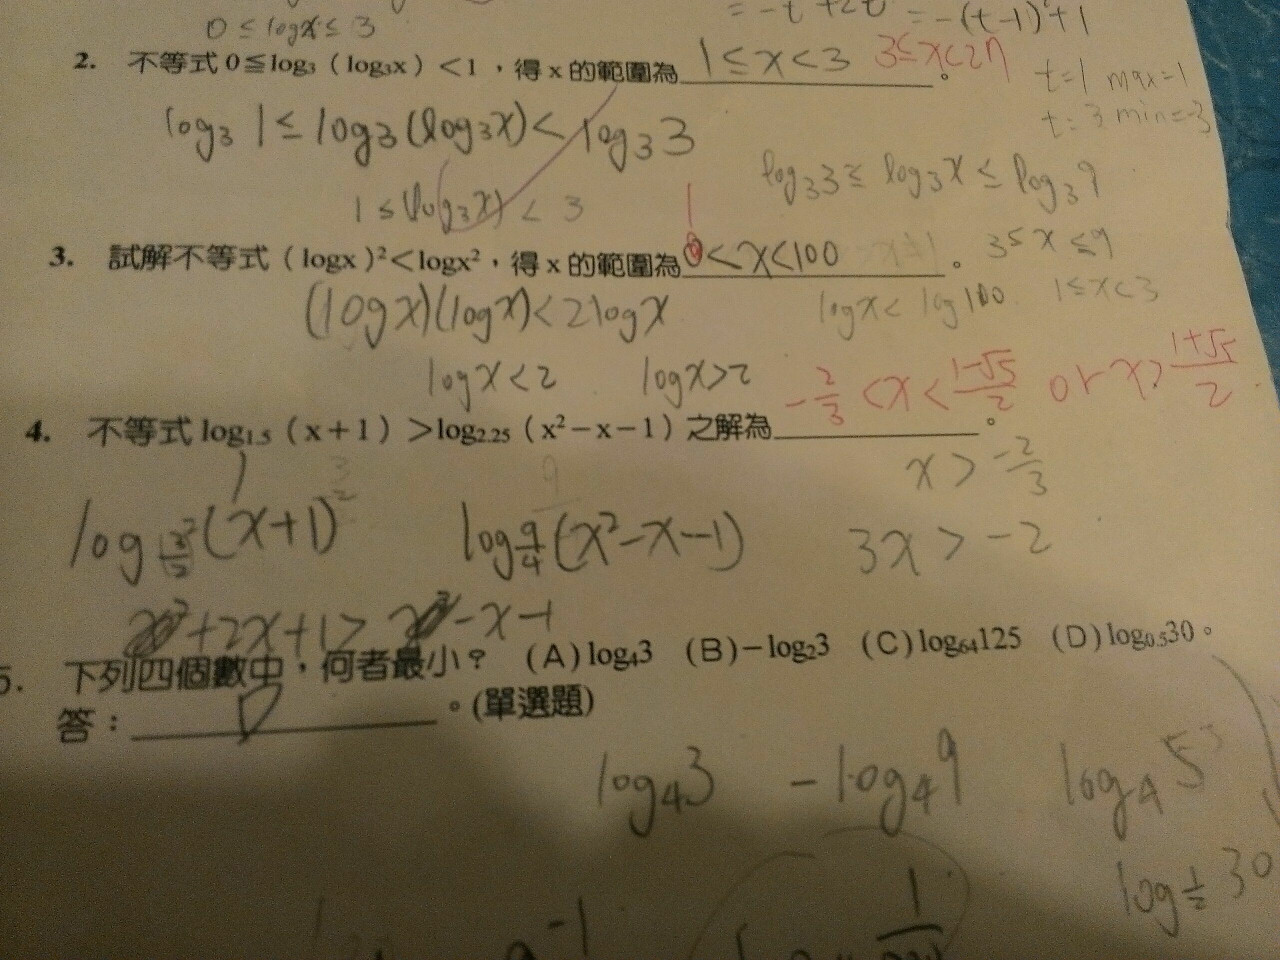 0 ≤ logx ≤ 3
= -t²+2t = -(t-1)²+1
t=1 max=1
t=3 min=-3
2. 不等式0≦log₃（log₃x）<1，得x的範圍為 1≤x<3 3≤x<27 。
log₃1≤log₃(log₃x)<log₃3
log₃3≤log₃x≤log₃9
1≤(log₃x)<3
3≤x≤9
1≤x<3
3. 試解不等式（logx）²<logx²，得x的範圍為 1 0<x<100 x≠1 。
(logx)(logx)<2logx
logx<log100
logx<2 logx>2
-2/3<x<(1-√5)/2 or x>(1+√5)/2
4. 不等式log₁.₅（x＋1）>log₂.₂₅（x²－x－1）之解為 。
x>-2/3
log (x+1)² log 9/4 (x²-x-1) 3x>-2
x²+2x+1>x²-x-1
5. 下列四個數中，何者最小？ (A)log₄3 (B)－log₂3 (C)log₆₄125 (D)log₀.₅30。
答： D 。(單選題)
log₄3 -log₄9 log₄5
log 1/2 30